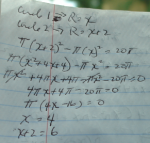 Circle 1 ⇒ R=x
Circle 2 ⇒ R=x+2
π(x+2)² - π(x)² = 20π
π(x²+4x+4) - πx² = 20π
πx²+4πx+4π-πx²-20π=0
4πx+4π-20π=0
π(4x-16)=0
x=4
x+2=6